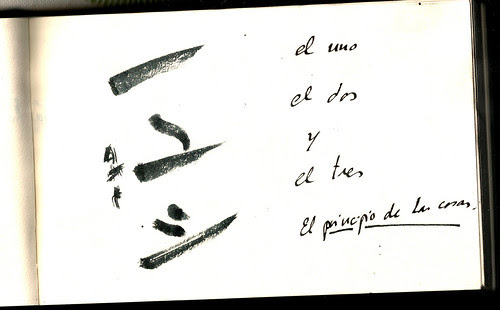 el uno
el dos
y
el tres
El principio de las cosas.